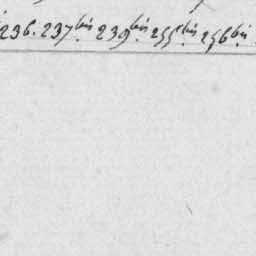 236. 237 bis 239 bis 255 bis 256 bis